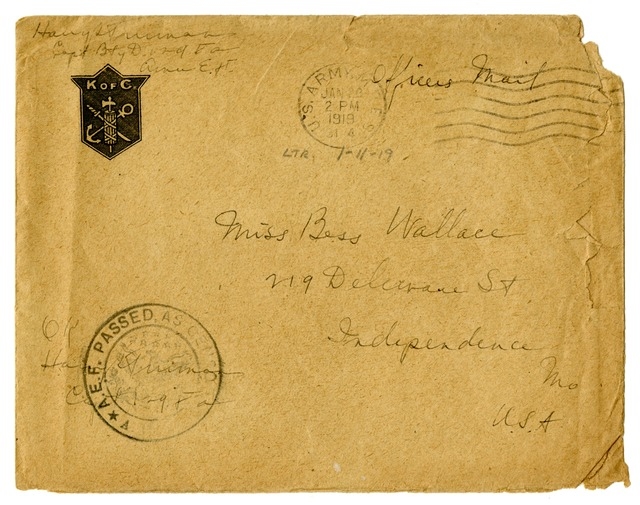 Harry S Truman
Capt Bty D 129 Fa
Amer E.F.
K OF C.
U.S. ARMY
JAN
2 PM
1919
Officers Mail
LTR, 1-11-19
Miss Bess Wallace
219 Delaware St
Independence
Mo
U.S.A
A.E.F. PASSED AS CENSORED
OK
Harry S Truman
Capt 129 Fa